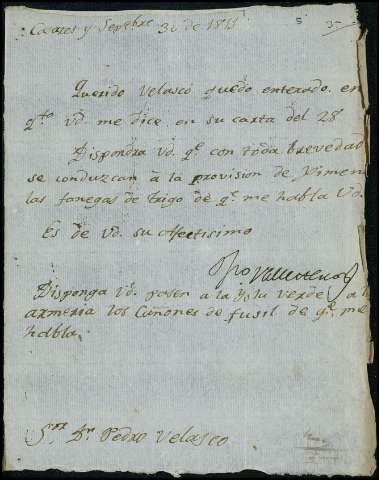 Casares y Septbre 30 de 1811
Querido Velasco quedo enterado en
qto Vd. me dice en su carta del 28
Dispondra Vd. qe con toda brevedad
se conduzcan a la provision de Ximena
las fanegas de trigo de qe me habla Vd.
Es de Vd. su Afectisimo
Disponga Vd. pasen a la Ysla Verde a la
armeria los Cañones de fusil de qe me
habla.
Sor Dn Pedro Velasco